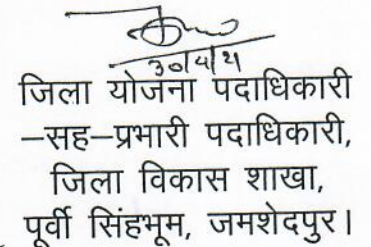 30/4/21
जिला योजना पदाधिकारी
–सह–प्रभारी पदाधिकारी,
जिला विकास शाखा,
पूर्वी सिंहभूम, जमशेदपुर।